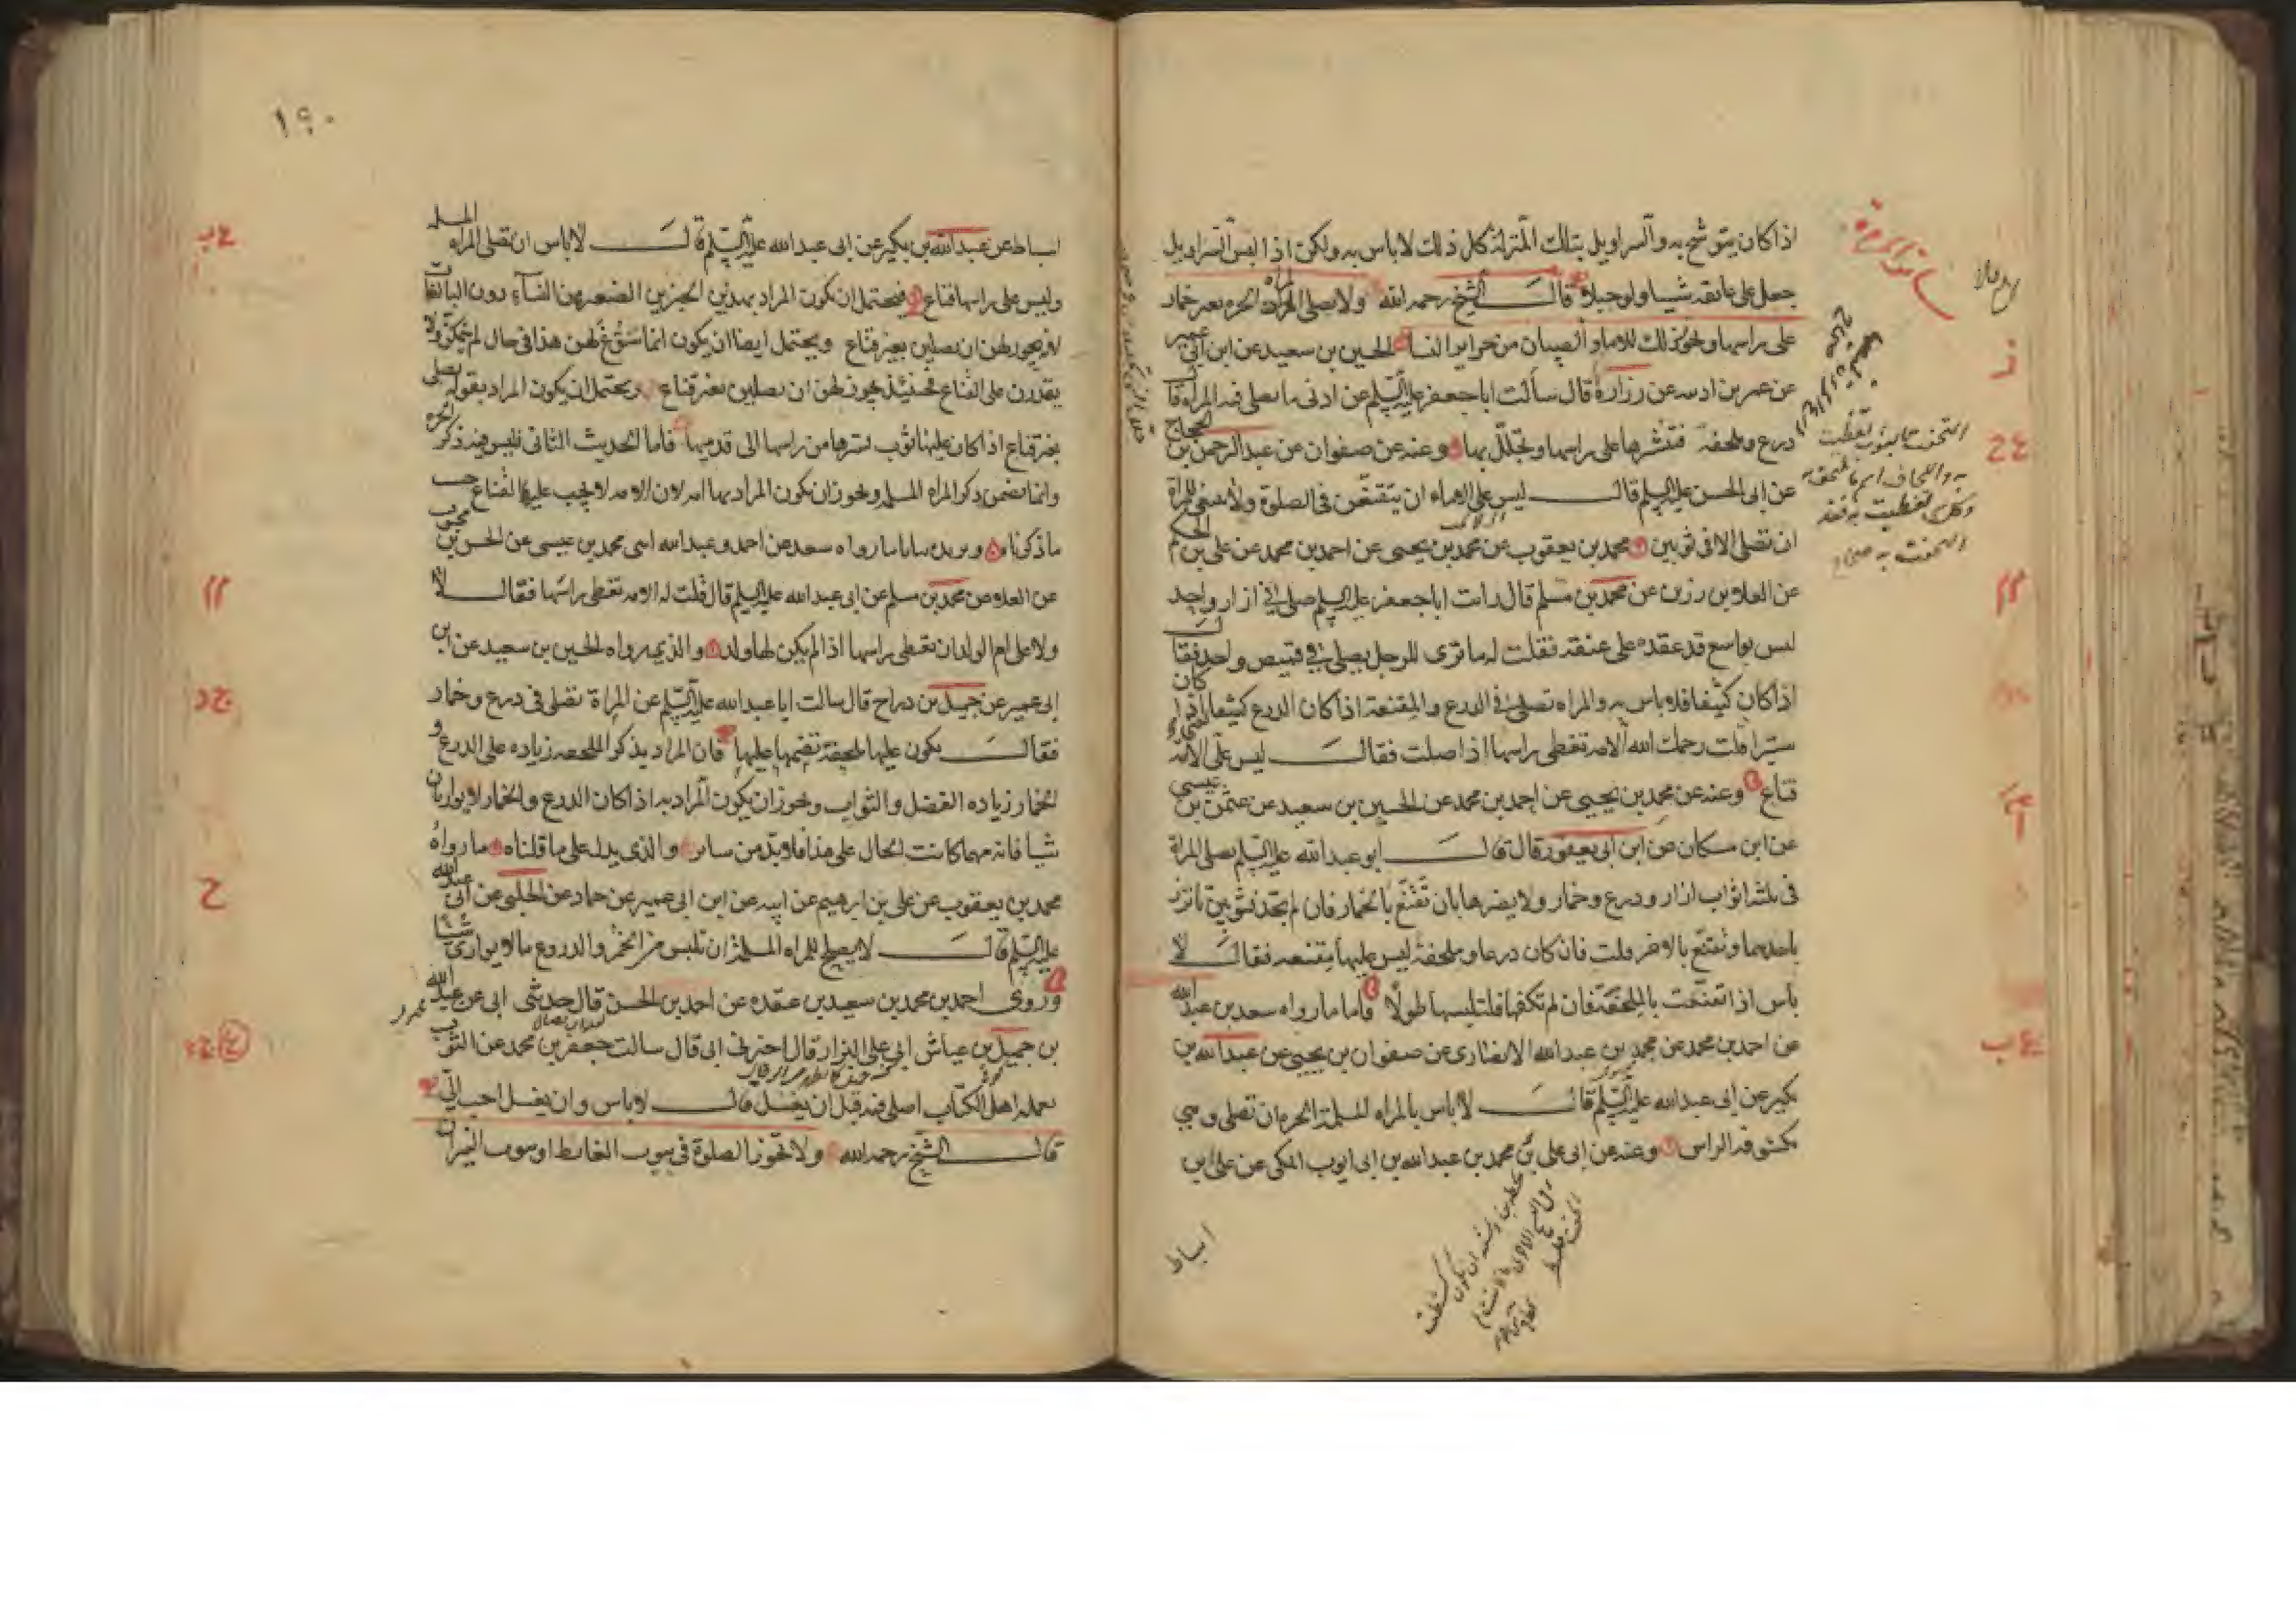 اذا كان يتوشح به والسراويل بتلك المنزلة كل ذلك لا باس به ولكن اذا لبس السراويل
جعل على عاتقه شيئا ولو حبلا قال الشيخ رحمه الله ولا تصلى المراة الحرة بغير خمار
على راسها ويجوز ذلك للاماء والصبيان من حراير النسا الحسين بن سعيد عن ابن ابي عمير
عن عمر بن اذينه عن زرارة قال سألت ابا جعفر عليه السلم عن ادنى ما تصلى فيه المراة قا
درع وملحفة فتنشرها على راسها وتجلل بها وعنه عن صفوان عن عبد الرحمن بن الحجاج
عن ابى الحسن عليه السلم قال ليس على الاماء ان يتقنعن في الصلوة ولا ينبغى للمراة
ان تصلى الا فى ثوبين محمد بن يعقوب عن محمد بن يحيى عن احمد بن محمد عن على بن الحكم
عن العلا بن رزين عن محمد بن مسلم قال رايت ابا جعفر عليه السلم صلى في ازار واحد
ليس بواسع قد عقده على عنقه فقلت له ما ترى للرجل يصلى في قميص واحد فقال
اذا كان كثيفا فلا باس به والمراه تصلى في الدرع والمقنعة اذا كان الدرع كثيفا اذا كان
ستيرا قلت رحمك الله الامه تغطى راسها اذا صلت فقال ليس على الامة
قناع وعنه عن محمد بن يحيى عن احمد بن محمد عن الحسين بن سعيد عن عثمن بن عيسى
عن ابن مسكان عن ابن ابى يعفور قال قال ابو عبد الله عليه السلم تصلى المراة
فى ثلثه اثواب ازار ودرع وخمار ولا يضرها بان تقنع بالخمار فان لم تجد فثوبين تاتزر
باحدهما وتقنع بالاخر قلت فان كان درعا وملحفة ليس عليها مقنعه فقال لا
باس اذا تقنعت بالملحفة فان لم تكفها فلتلبسها طولا فاما ما رواه سعد بن عبد الله
عن احمد بن محمد عن محمد بن عبد الله الانصارى عن صفوان بن يحيى عن عبد الله بن
بكير عن ابى عبد الله عليه السلم قال لا باس بالمراه المسلمة الحره ان تصلى وهي
مكشوفه الراس وعنه عن ابى على بن محمد بن عبد الله بن ابى ايوب المكى عن على بن
اسباط
١٩٠
اسباط عن عبد الله بن بكير عن ابى عبد الله عليه السلم قال لا باس ان تصلى المراه المسلمه
وليس على راسها قناع فيحتمل ان يكون المراد بهذين الخبرين الصغيرة من النساء دون البالغات
لانه يجوز لهن ان يصلين بغير قناع ويحتمل ايضا ان يكون انما سوغ لهن هذا فى حال لم يتمكن ولا
يقدرن على القناع فحينئذ يجوز لهن ان يصلين بغير قناع ويحتمل ان يكون المراد بقوله تصلى
بغير قناع اذا كان عليها ثوب يسترها من راسها الى قدميها فاما الحديث الثانى فليس فيه ذكر الحره
وانما تضمن ذكر المراه المسلمه ويجوز ان يكون المراد بها امه لان الامه لا يجب عليها القناع حسب
ما ذكرناه ويزيده بيانا ما رواه سعد عن احمد وعبد الله ابنى محمد بن عيسى عن الحسن بن محبوب
عن العلاء عن محمد بن مسلم عن ابى عبد الله عليه السلم قال قلت له الامه تغطى راسها فقال لا
ولا على ام الولد ان تغطى راسها اذا لم يكن لها ولد والذى رواه الحسين بن سعيد عن ابن
ابى عمير عن جميل بن دراج قال سالت ابا عبد الله عليه السلم عن المراة تصلى فى درع وخمار
فقال يكون عليها ملحفة تضمها عليها فان المراد بذكر الملحفه زياده على الدرع و
الخمار زياده الفضل والثواب ويجوز ان يكون المراد به اذا كان الدرع والخمار لا يواريان
شيا فانه مهما كانت الحال على هذا فلا بد من ساتر والذى يدل على ما قلناه ما رواه
محمد بن يعقوب عن على بن ابرهيم عن ابيه عن ابن ابى عمير عن حماد عن الحلبى عن ابى عبد الله
عليه السلم قال لا يصلح للمراه المسلمة ان تلبس من الخمر والدروع ما لا يوارى شيئا
وروى احمد بن محمد بن سعيد بن عقده عن احمد بن الحسن قال حدثنى ابى عن عبد الله
بن جميل بن عياش ابى على البزاز قال اخبرنى ابى قال سالت جعفر بن محمد عن الثوب
يعمله اهل الكتاب اصلى فيه قبل ان يغسل قال لا باس وان يغسل احب الىّ
قال الشيخ رحمه الله ولا تجوز الصلوة فى بيوت الغايط وبيوت النيران